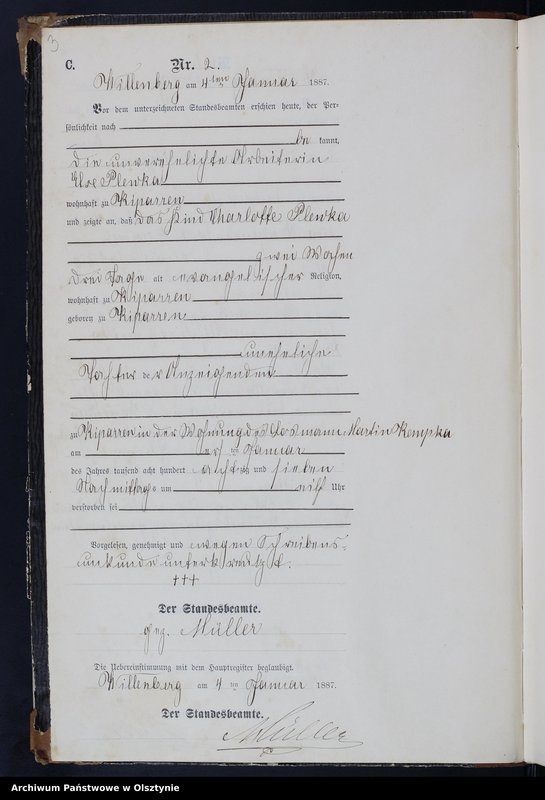 3
C. Nr. 2.
Willenberg am 4ten Januar 1887.
Vor dem unterzeichneten Standesbeamten erschien heute, der Per-
sönlichkeit nach
be kannt,
die unverehelichte Arbeiterin
Else Plewka
wohnhaft zu Kiparren
und zeigte an, daß das Kind Charlotte Plewka
zwei Wochen
drei Tage alt evangelischer Religion,
wohnhaft zu Kiparren
geboren zu Kiparren
uneheliche
Tochter der Anzeigenden
zu Kiparren in der Wohnung des Losmann Martin Kempka
am ersten Januar
des Jahres tausend acht hundert achtzig und sieben
Nachmittags um eilf Uhr
verstorben sei
Vorgelesen, genehmigt und wegen Schreibens-
unkunde unterkreuzt.
+++
Der Standesbeamte.
gez. Müller
Die Uebereinstimmung mit dem Hauptregister beglaubigt.
Willenberg am 4ten Januar 1887.
Der Standesbeamte.
Müller
Archiwum Państwowe w Olsztynie